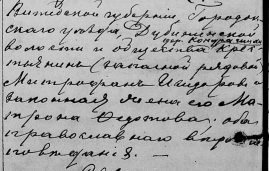 Витебской губернии Городок-
скаго уезда, Дубининской
волости и общества кре-
стьянинъ (запасной рядовой)
Митрофанъ Исидоровъ и
законная жена его Ма-
трона Федотова; оба
православнаго вѣро-
исповѣданія. —